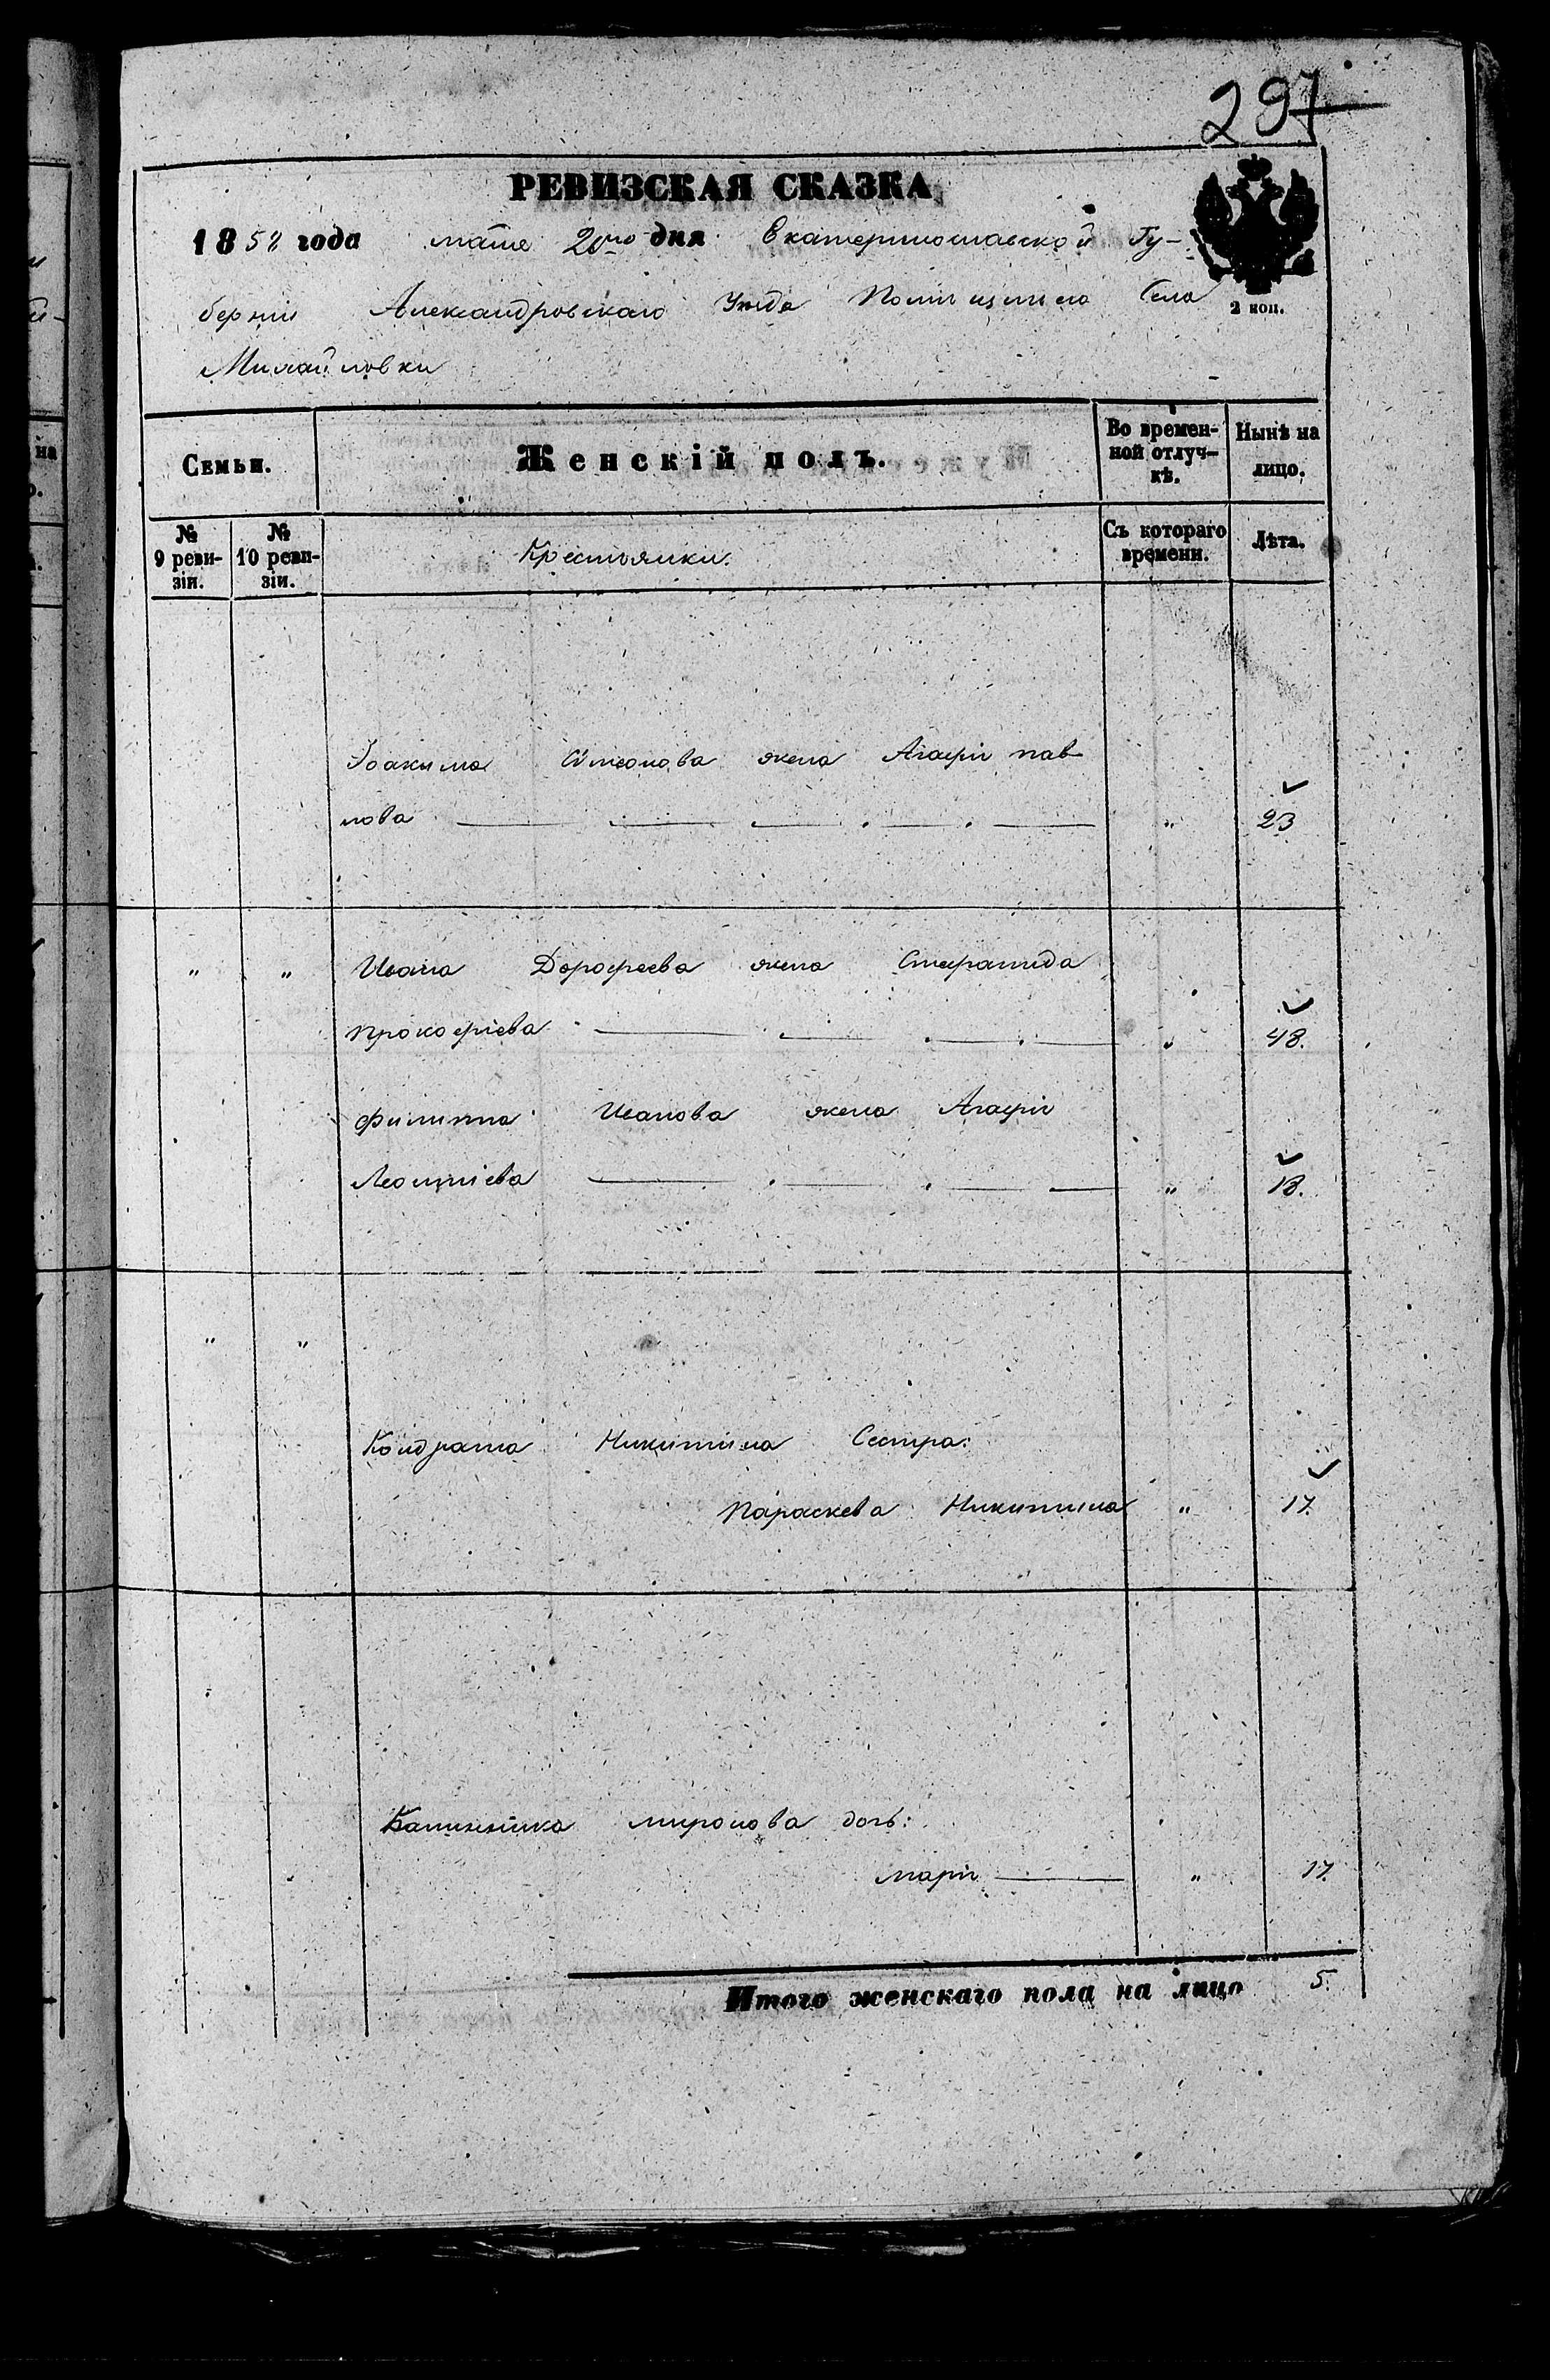 297
РЕВИЗСКАЯ СКАЗКА
1858 года маiя 20го дня Екатеринославской Гу-
бернiи Александровскаго Уѣзда Помѣщичьяго Села
2 коп.
Михайловки
Семьи.
Женскiй полъ.
Во времен-
ной отлуч-
кѣ.
Нынѣ на
лицо.
№
9 реви-
зiи.
№
10 реви-
зiи.
Крестьянки.
Съ котораго
времени.
Лѣта.
Іоакима Симеонова жена Агафiя пав
лова " 23
" " Ивана Дорофеева жена Стефанида
Прокофiева " 48.
Филиппа Иванова жена Агафiя
Леонтiева " 18.
" "
Кондрата Никитина Сестра:
Параскева Никитина " 17.
миронова дочь:
марiя " 17.
Итого женскаго пола на лицо 5.